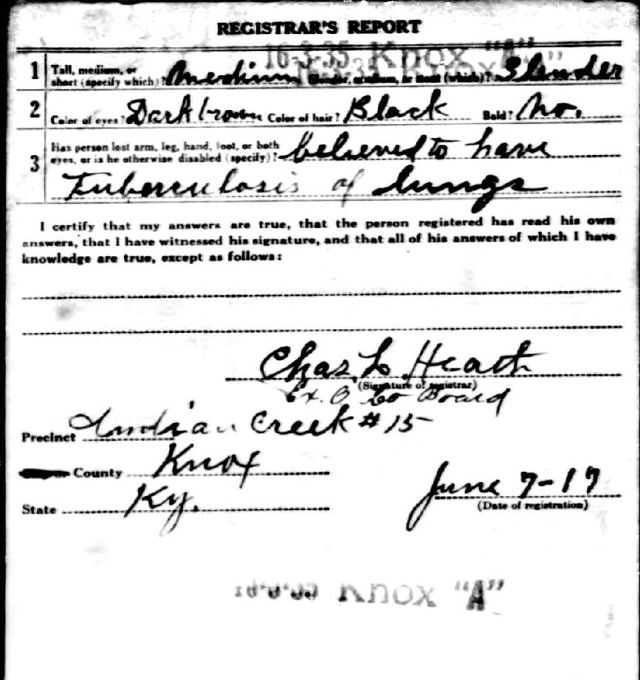 REGISTRAR'S REPORT
16-3-35 Knox "A"
1 Tall, medium, or
short (specify which)? Medium Slender, medium, or stout (which)? Slender
2 Color of eyes? Dark brown Color of hair? Black Bald? No.
Has person lost arm, leg, hand, foot, or both
3 eyes, or is he otherwise disabled (specify)? believed to have
Tuberculosis of lungs
I certify that my answers are true, that the person registered has read his own
answers, that I have witnessed his signature, and that all of his answers of which I have
knowledge are true, except as follows:
Chas L Heath
(Signature of registrar)
Ex. O Co Board
Precinct Indian Creek # 15
County Knox
State Ky.
June 7-17
(Date of registration)
16-3-35 Knox "A"